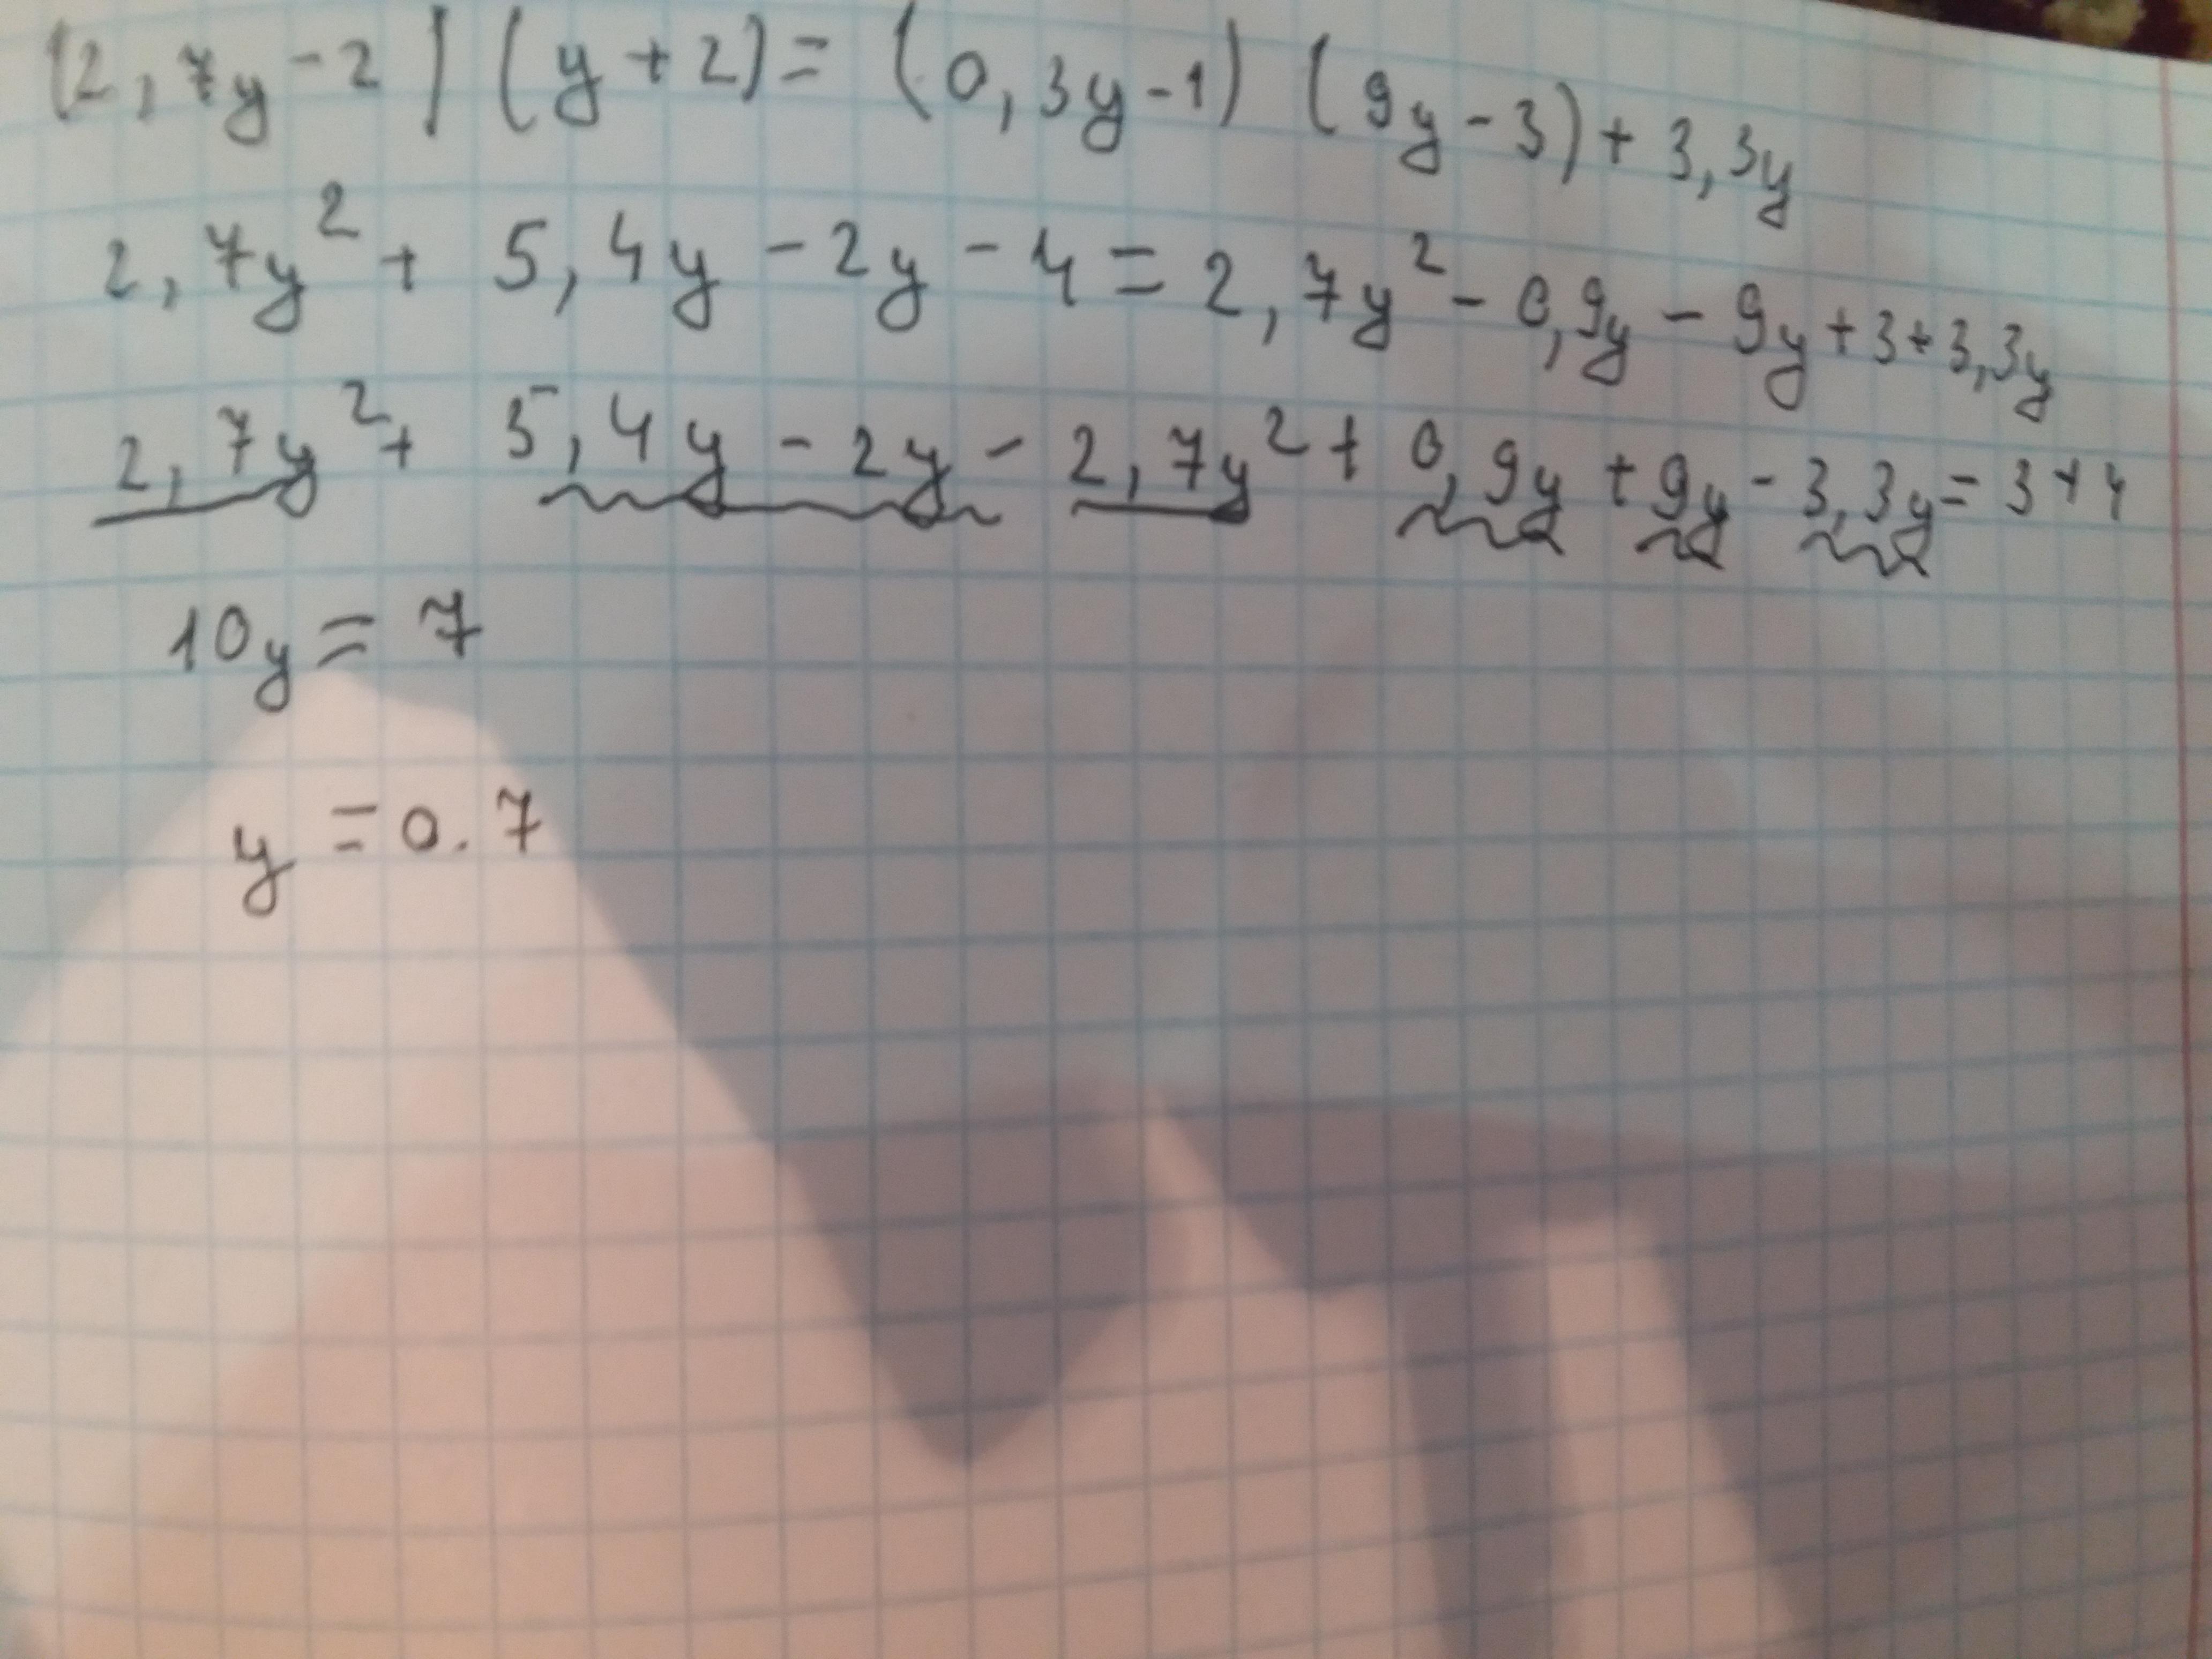 (2,7y-2)(y+2)=(0,3y-1)(9y-3)+3,3y
2,7y²+5,4y-2y-4=2,7y²-0,9y-9y+3+3,3y
2,7y²+5,4y-2y-2,7y²+0,9y+9y-3,3y=3+4
10y=7
y=0.7